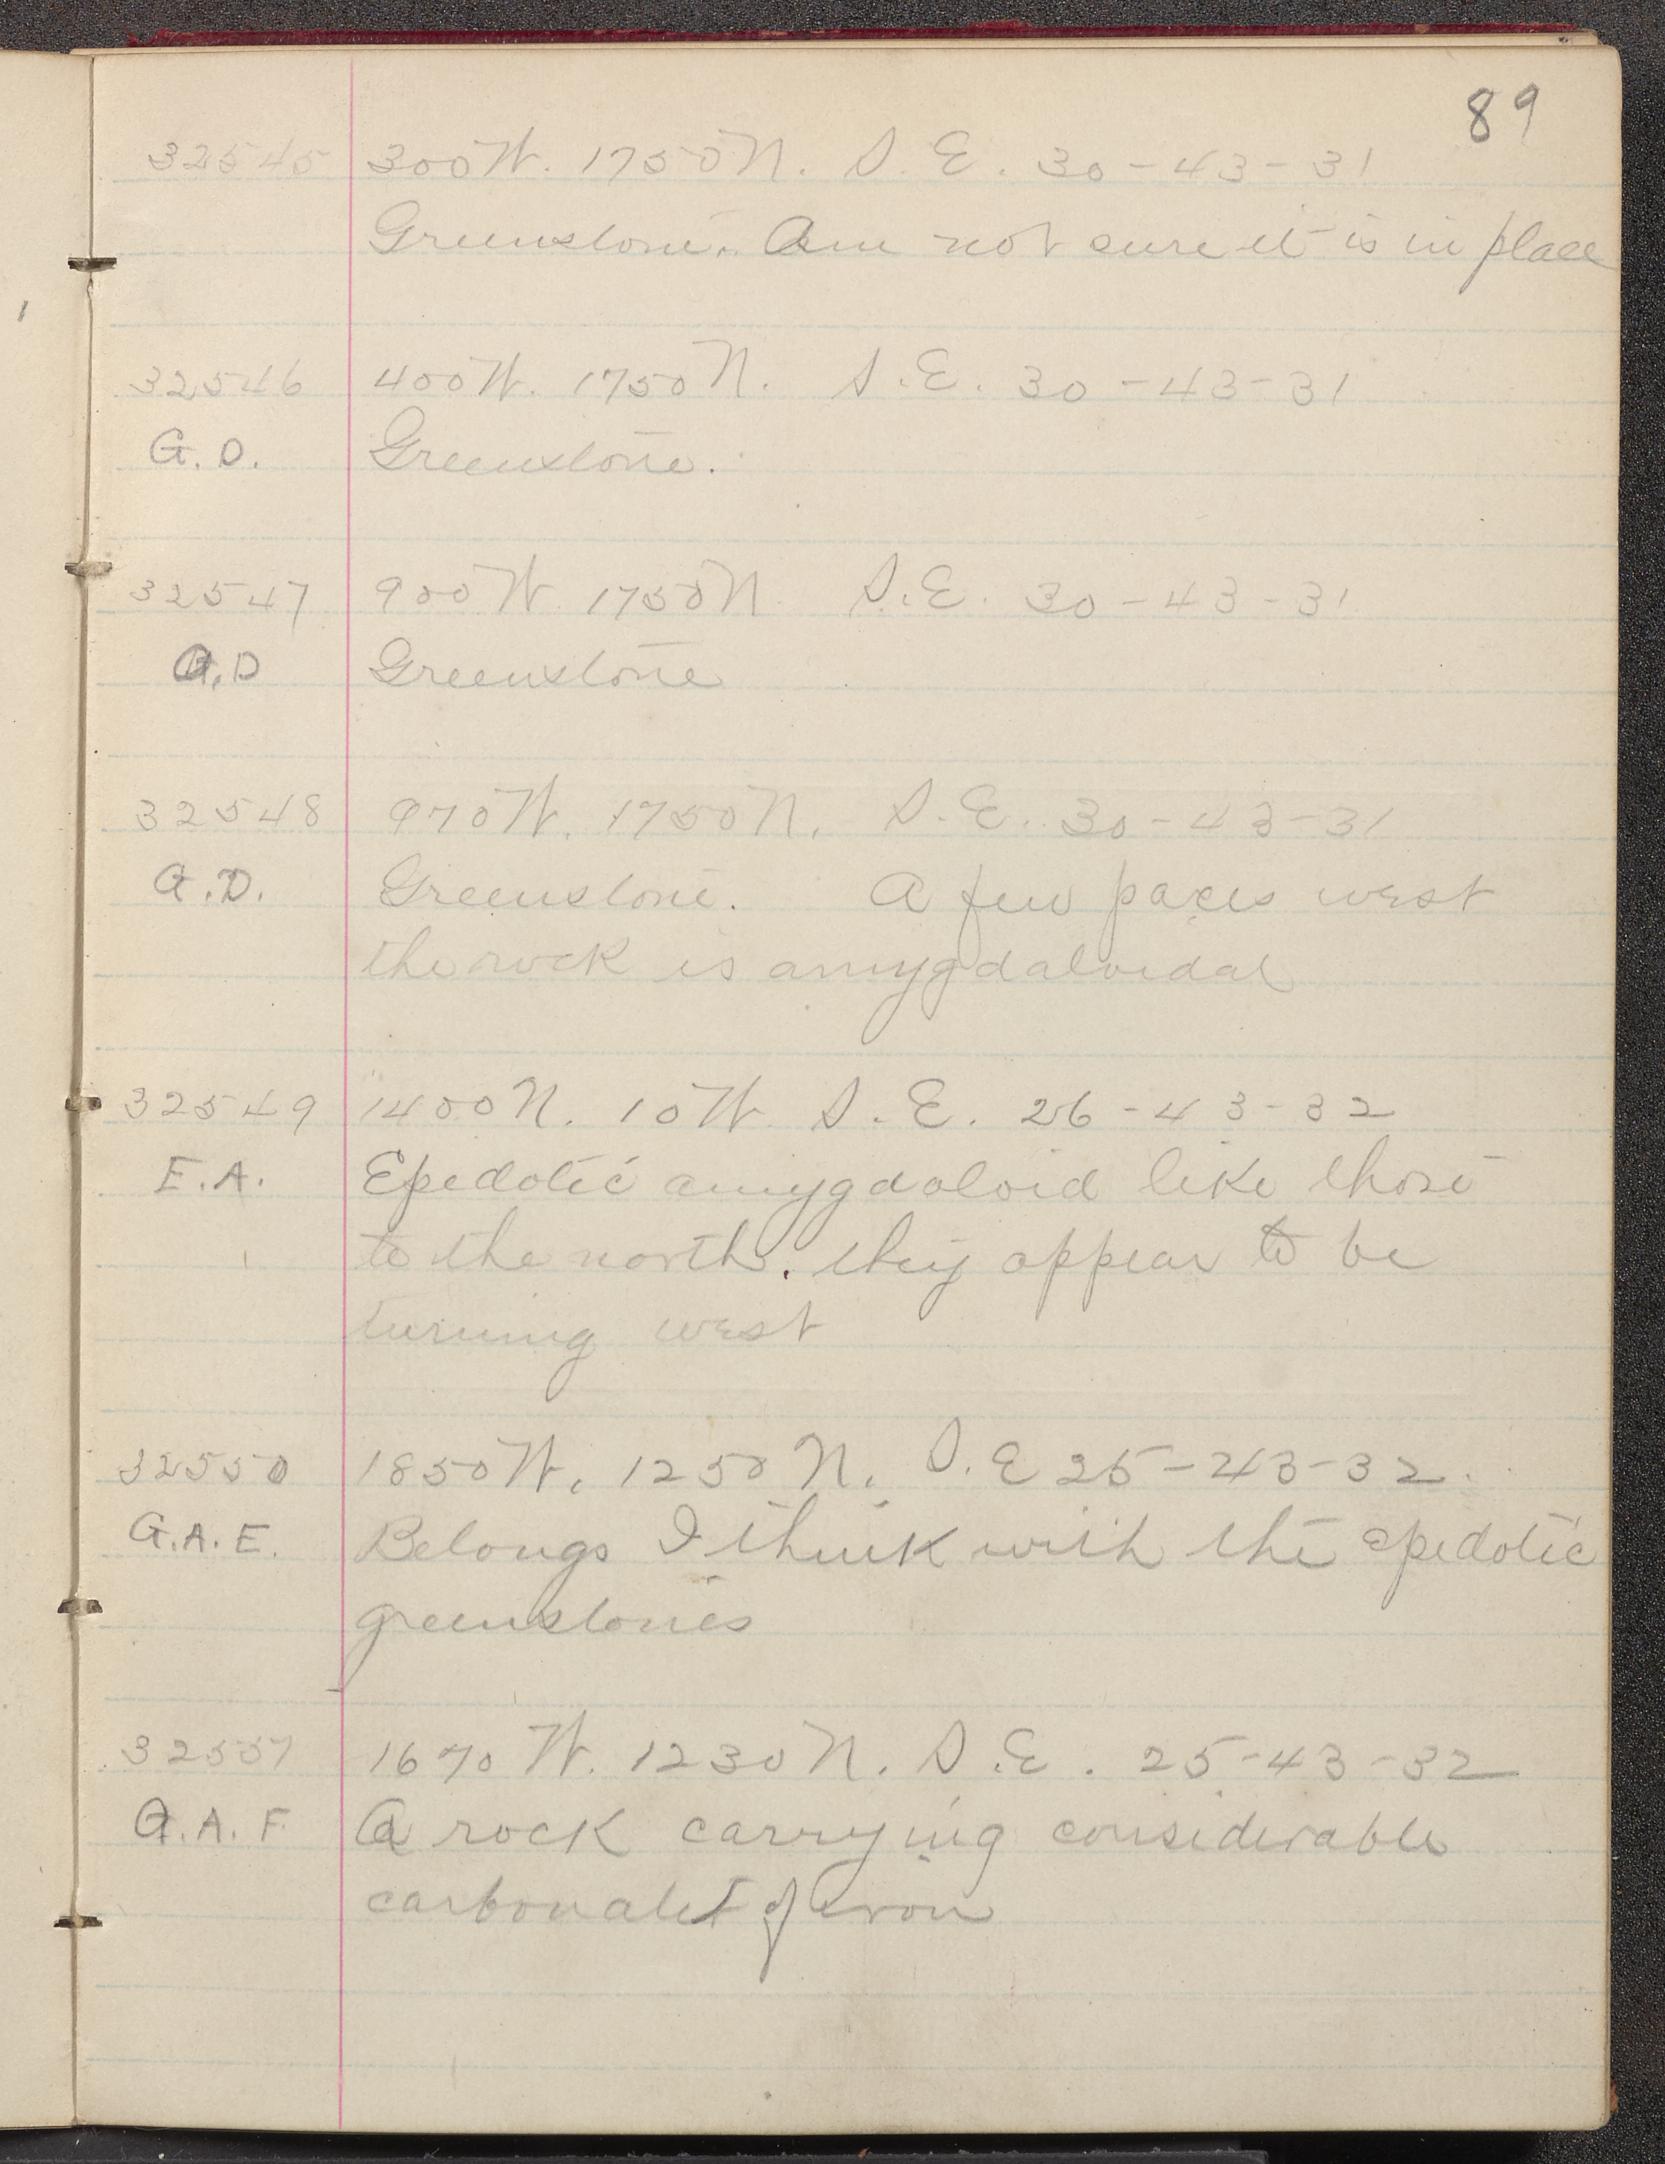 89
32545 300W. 1750N. S.E. 30-43-31
Greenstone. Am not sure it is in place
32546 400W. 1750N. S.E. 30-43-31
G.D. Greenstone.
32547 900W 1750N S.E. 30-43-31
G.D Greenstone
32548 970W. 1750N. S.E. 30-43-31
G.D. Greenstone. A few paces west
the rock is amygdaloidal
32549 1400N. 10W S.E. 26-43-32
E.A. Epedotic amygdaloid like those
to the north. they appear to be
turning west
32550 1850W. 1250N. S.E 25-43-32.
G.A.E. Belongs I think with the epedotic
greenstones
32551 1670W. 1230N. S.E. 25-43-32
G.A.F. A rock carrying considerable
of iron